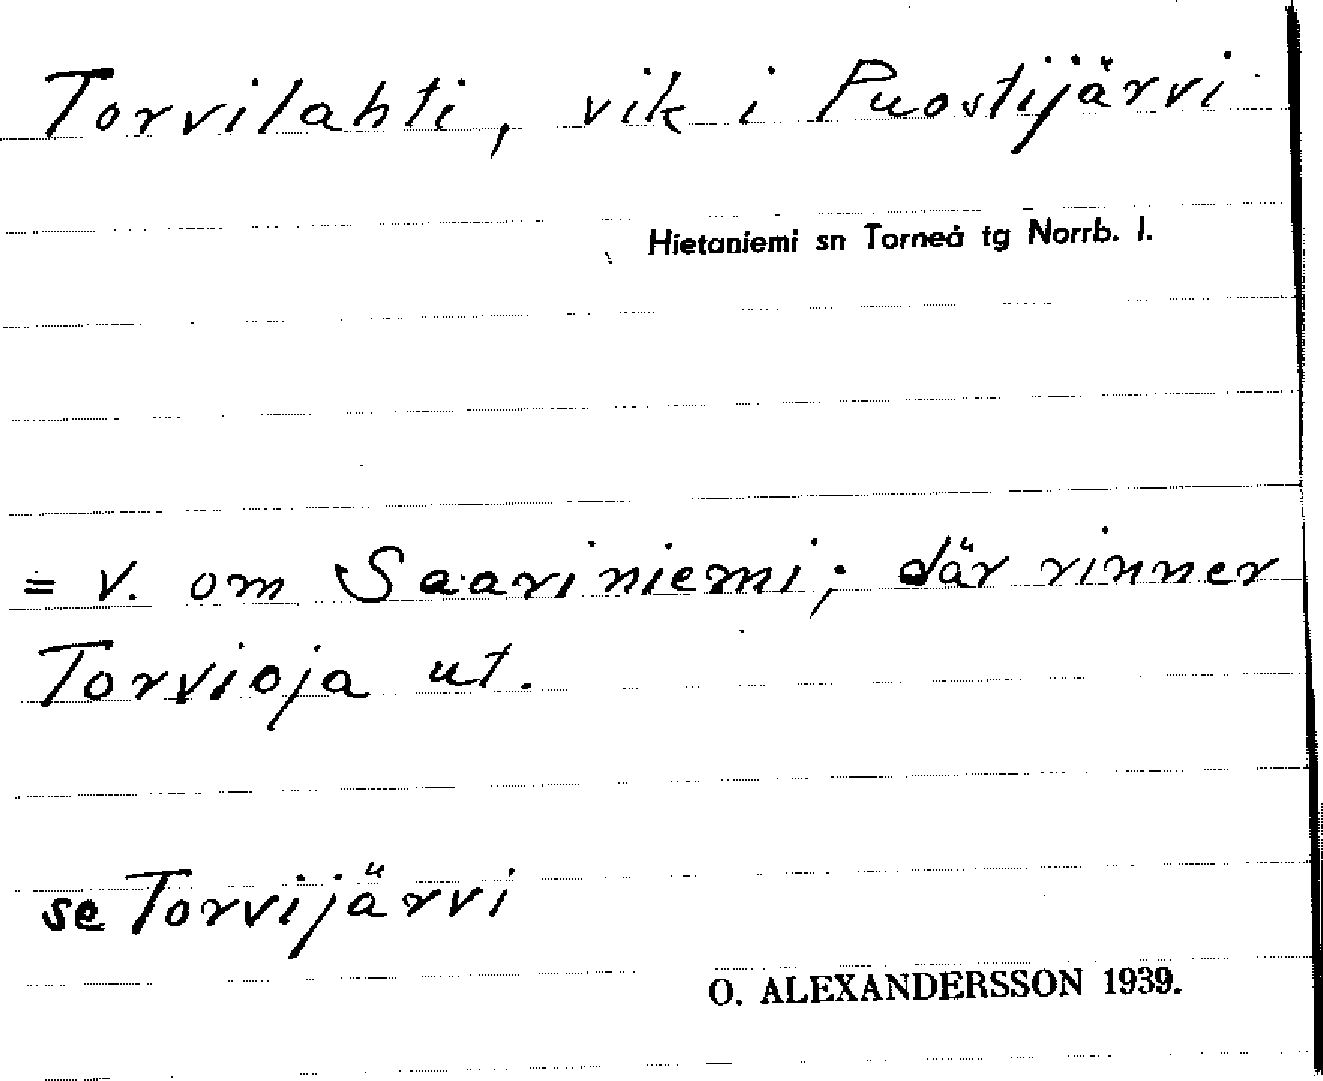 Torvilahti, vik i Puostijärvi
Hietaniemi sn Torneå tg Norrb. l.
= V. om Saariniemi; där rinner
Torvioja ut.
se Torvijärvi
O. ALEXANDERSSON 1939.